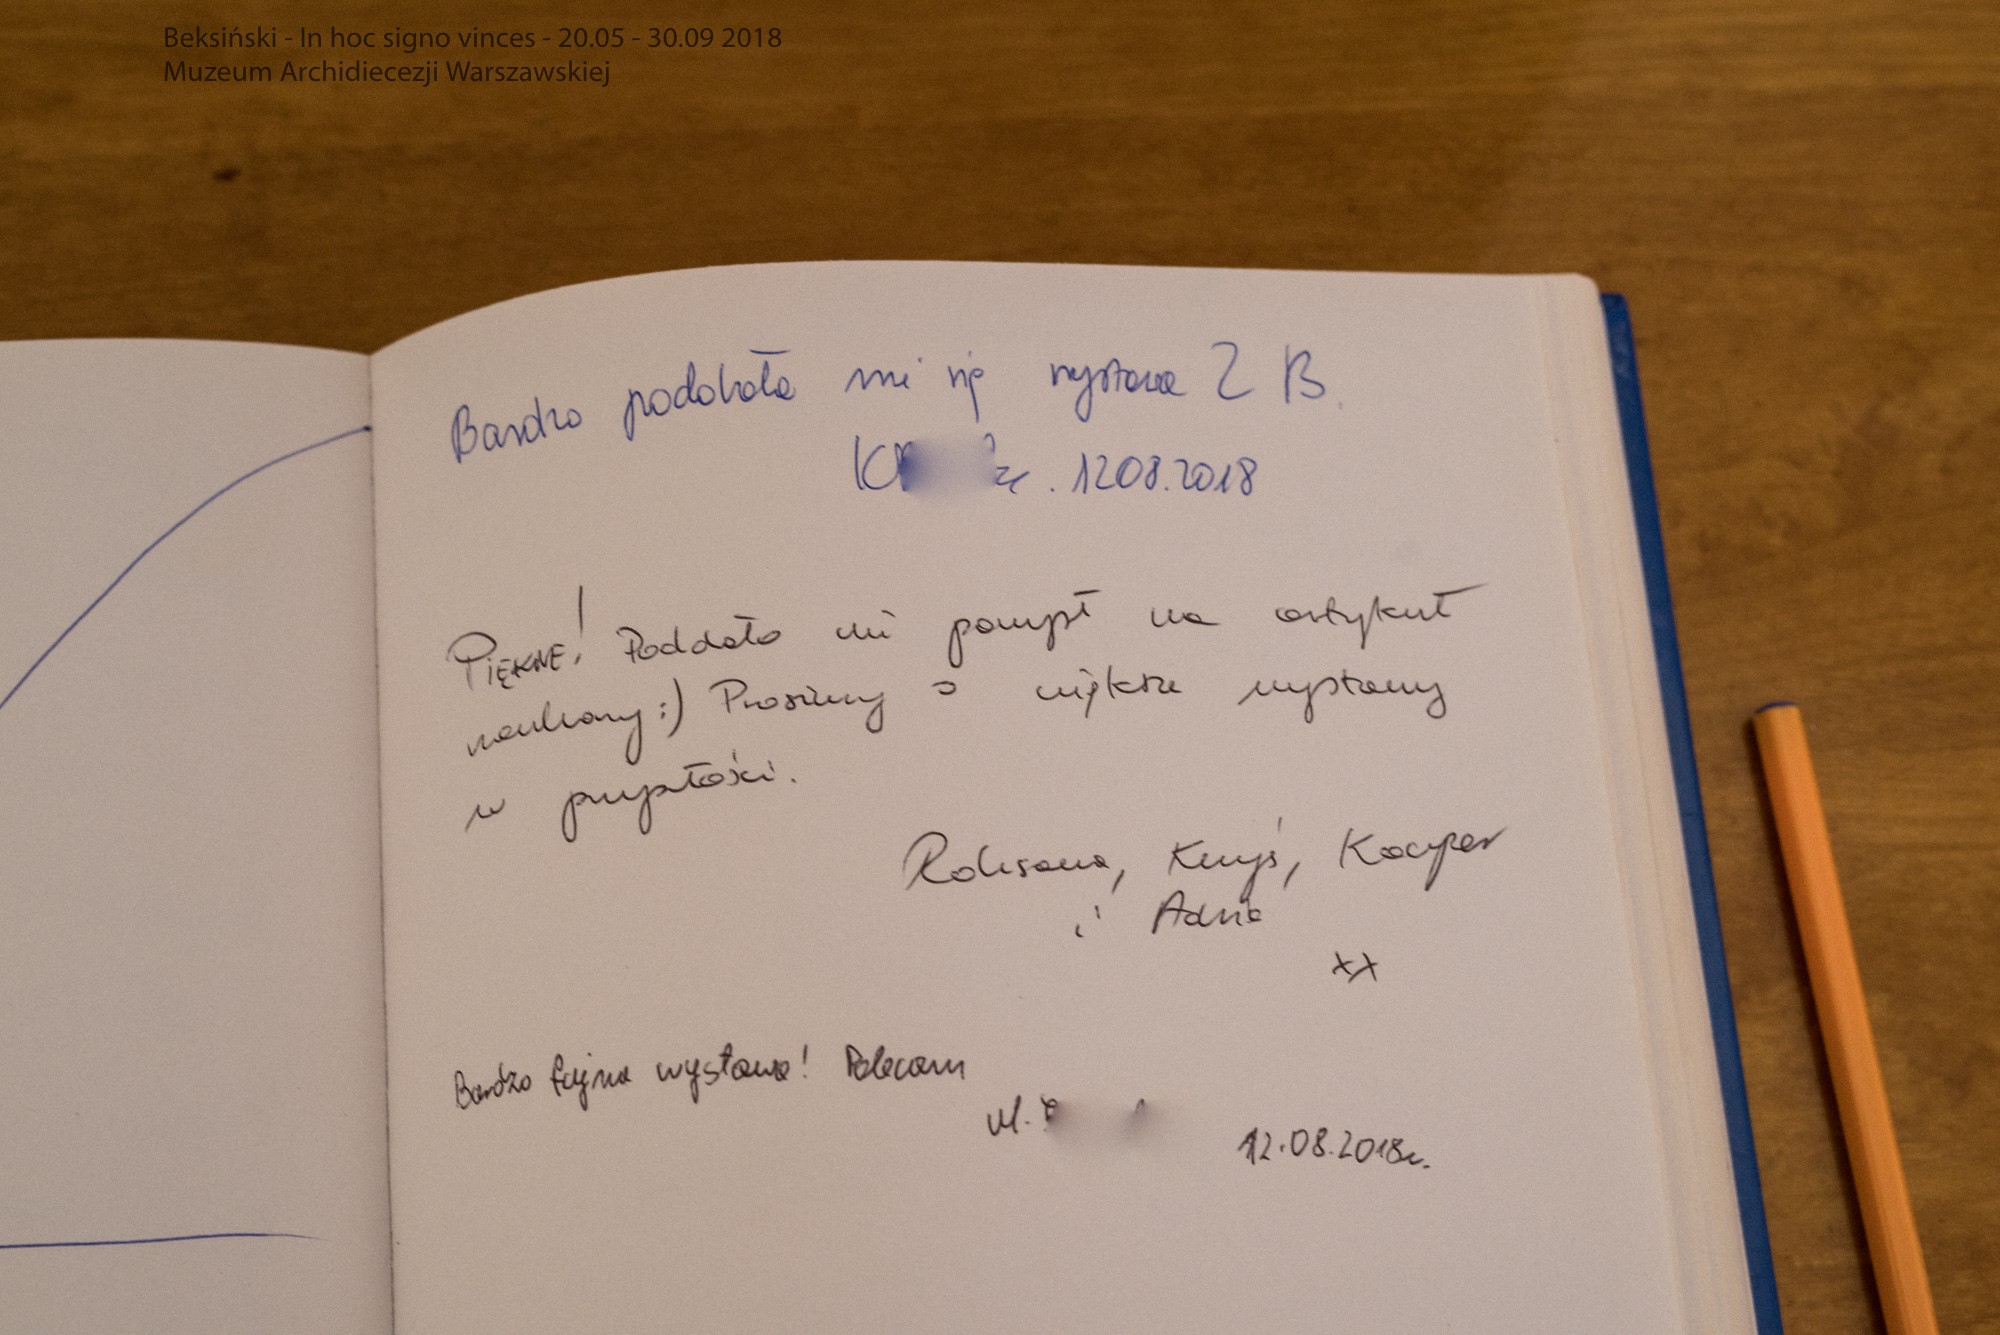 Beksiński - In hoc signo vinces - 20.05 - 30.09 2018
Muzeum Archidiecezji Warszawskiej
Bardzo podobała mi się wystawa Z B.
12.08.2018
PIĘKNE! Poddało mi pomysł na artykuł
naukowy :) Prosimy o większe wystawy
w przyszłości.
Roksana, Krzyś, Kacper
i Adria
xx
Bardzo fajna wystawa! Polecam
M.
12.08.2018r.